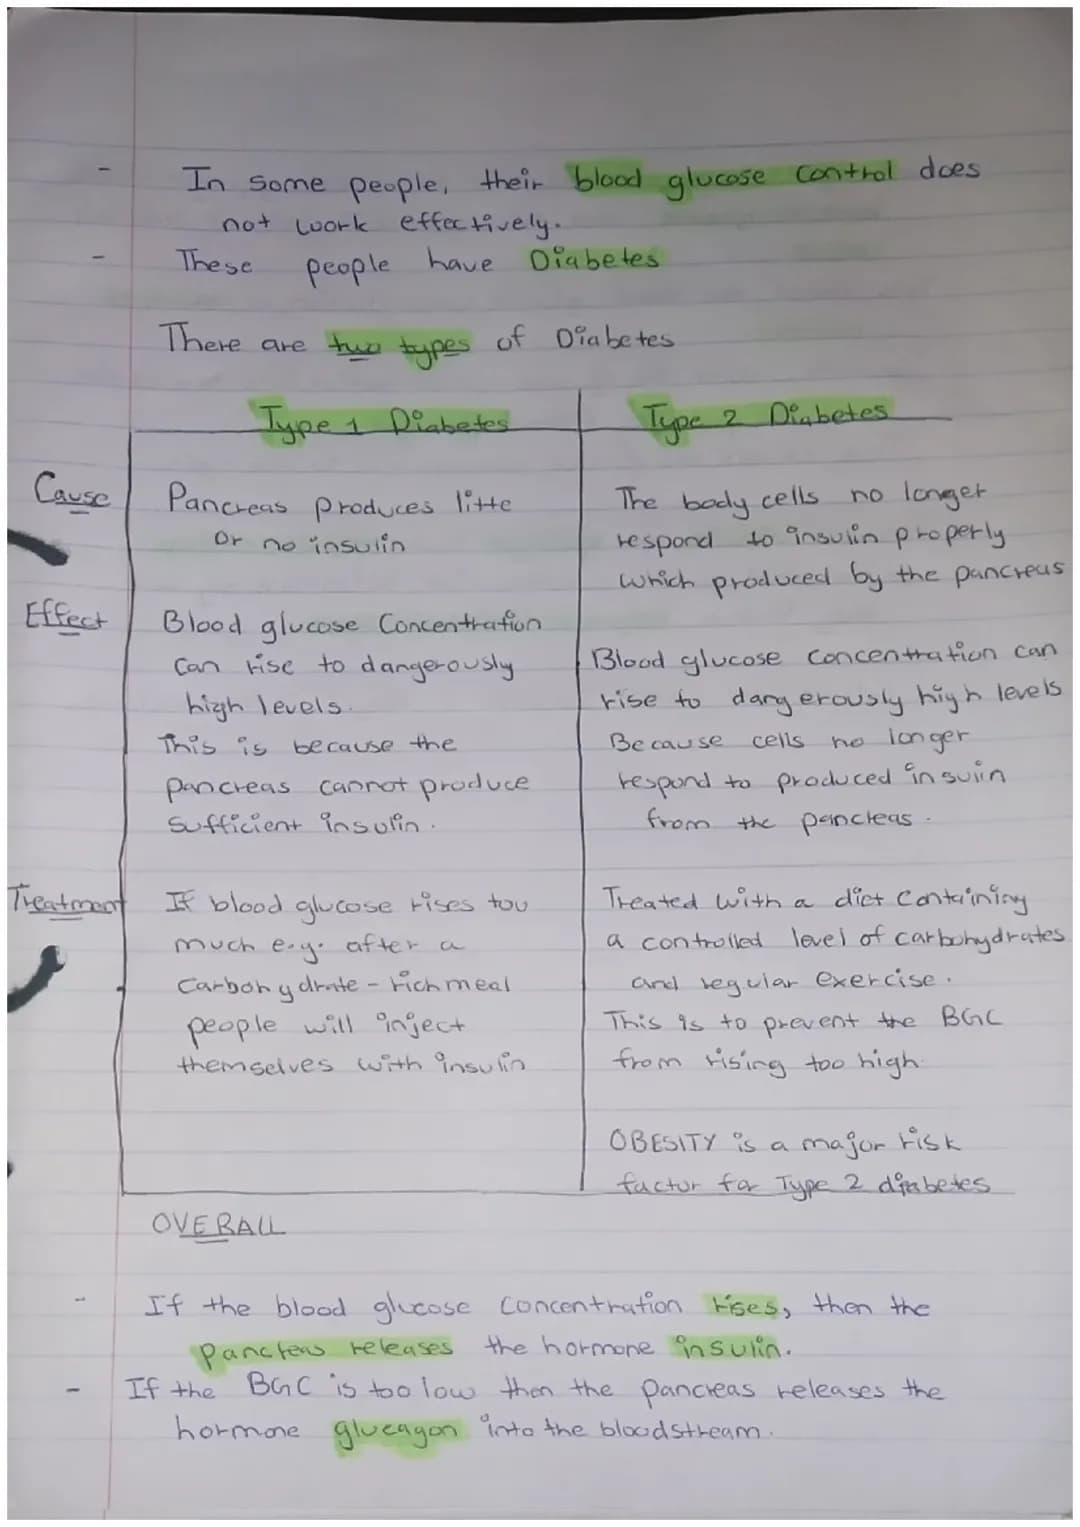 - In some people, their blood glucose control does
not work effectively.
- These people have Diabetes
There are two types of Diabetes
Type 1 Diabetes
Type 2 Diabetes
Cause
Pancreas produces litte
or no insulin
The body cells no longer
respond to insulin properly
which produced by the pancreas
Effect
Blood glucose Concentration
can rise to dangerously
high levels.
This is because the
pancreas cannot produce
sufficient insulin.
Blood glucose concentration can
rise to dangerously high levels
Because cells no longer
respond to produced insuin
from the pancreas.
Treatment
If blood glucose rises too
much e.g. after a
Carbohydrate - rich meal
people will inject
themselves with insulin
Treated with a diet containing
a controlled level of carbohydrates
and regular exercise.
This is to prevent the BGC
from rising too high.
OBESITY is a major risk
factor for Type 2 diabetes
OVERALL
- If the blood glucose concentration rises, then the
pancreas releases the hormone insulin.
- If the BGC is too low then the pancreas releases the
hormone glucagon into the bloodstream.